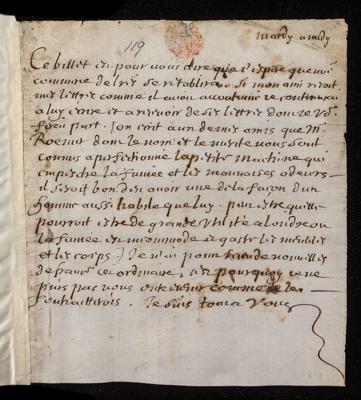 mardy a midy
119
Ce billet est pour vous dire que j'espere que mon
commerce de lres se retablira. Si mon ami recoit
mes lettres comme il avoit accoutumé je continuerai
a luy ecrire et a recevoir de ses lettres dont je vs
ferai part. Jon ecrit a un de mes amis que Mr
Roemer dont le nom et le merite vous sont
connus a perfectionné la petite machine qui
empesche la fumée et les mauvaises odeurs
il seroit bon d'en avoir une de la facon d'un
homme aussi habile que luy. peut estre qu'elle
pourroit estre de grande utilité a londre ou
la fumée est incommode et gaste les meubles
et les corps. Je n'ai point eu de nouvelles
de france cet ordinaire, c'est pourquoy je ne
puis pas vous entretenir comme je le
souhaitterois. Je suis tout a vous